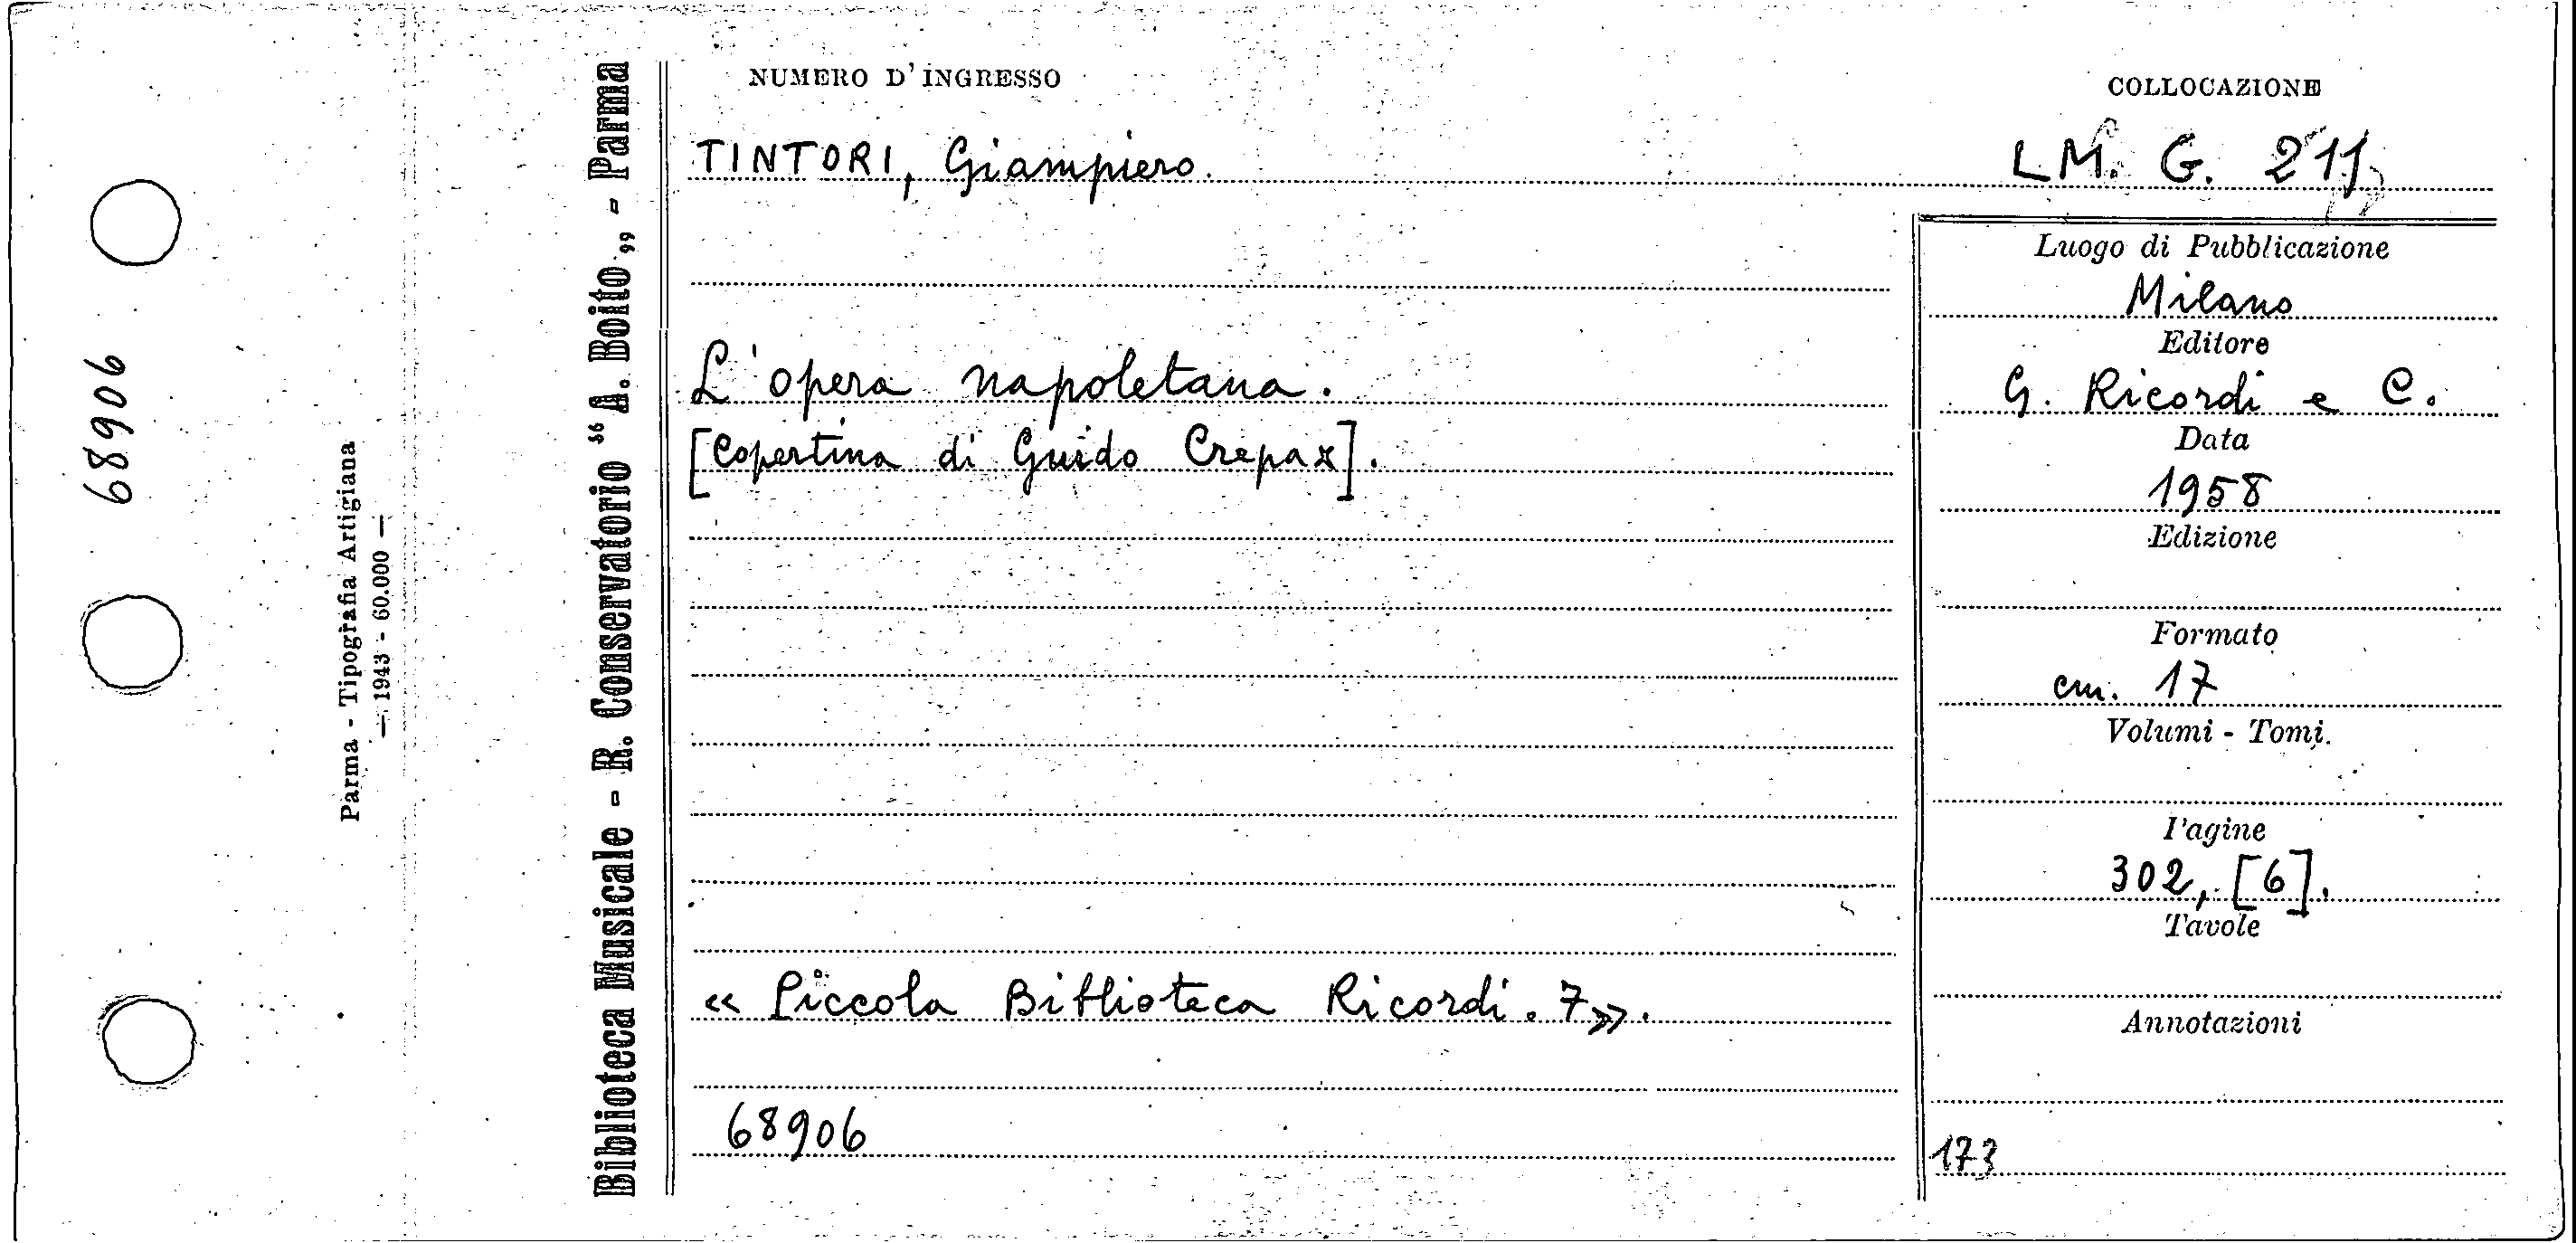 68906
Parma - Tipografia Artigiana
— 1943 - 60.000 —
Biblioteca Musicale - R. Conservatorio “A. Boito„ - Parma
NUMERO D'INGRESSO
COLLOCAZIONE
TINTORI, Giampiero.
LM. G.
L'opera napoletana.
[Copertina di Guido Crepax].
« Piccola Biblioteca Ricordi. 7».
68906
Luogo di Pubblicazione
Milano
Editore
G. Ricordi e C.
Data
1958
Edizione
Formato
cm. 17
Volumi - Tomi.
Pagine
302, [6].
Tavole
Annotazioni
173